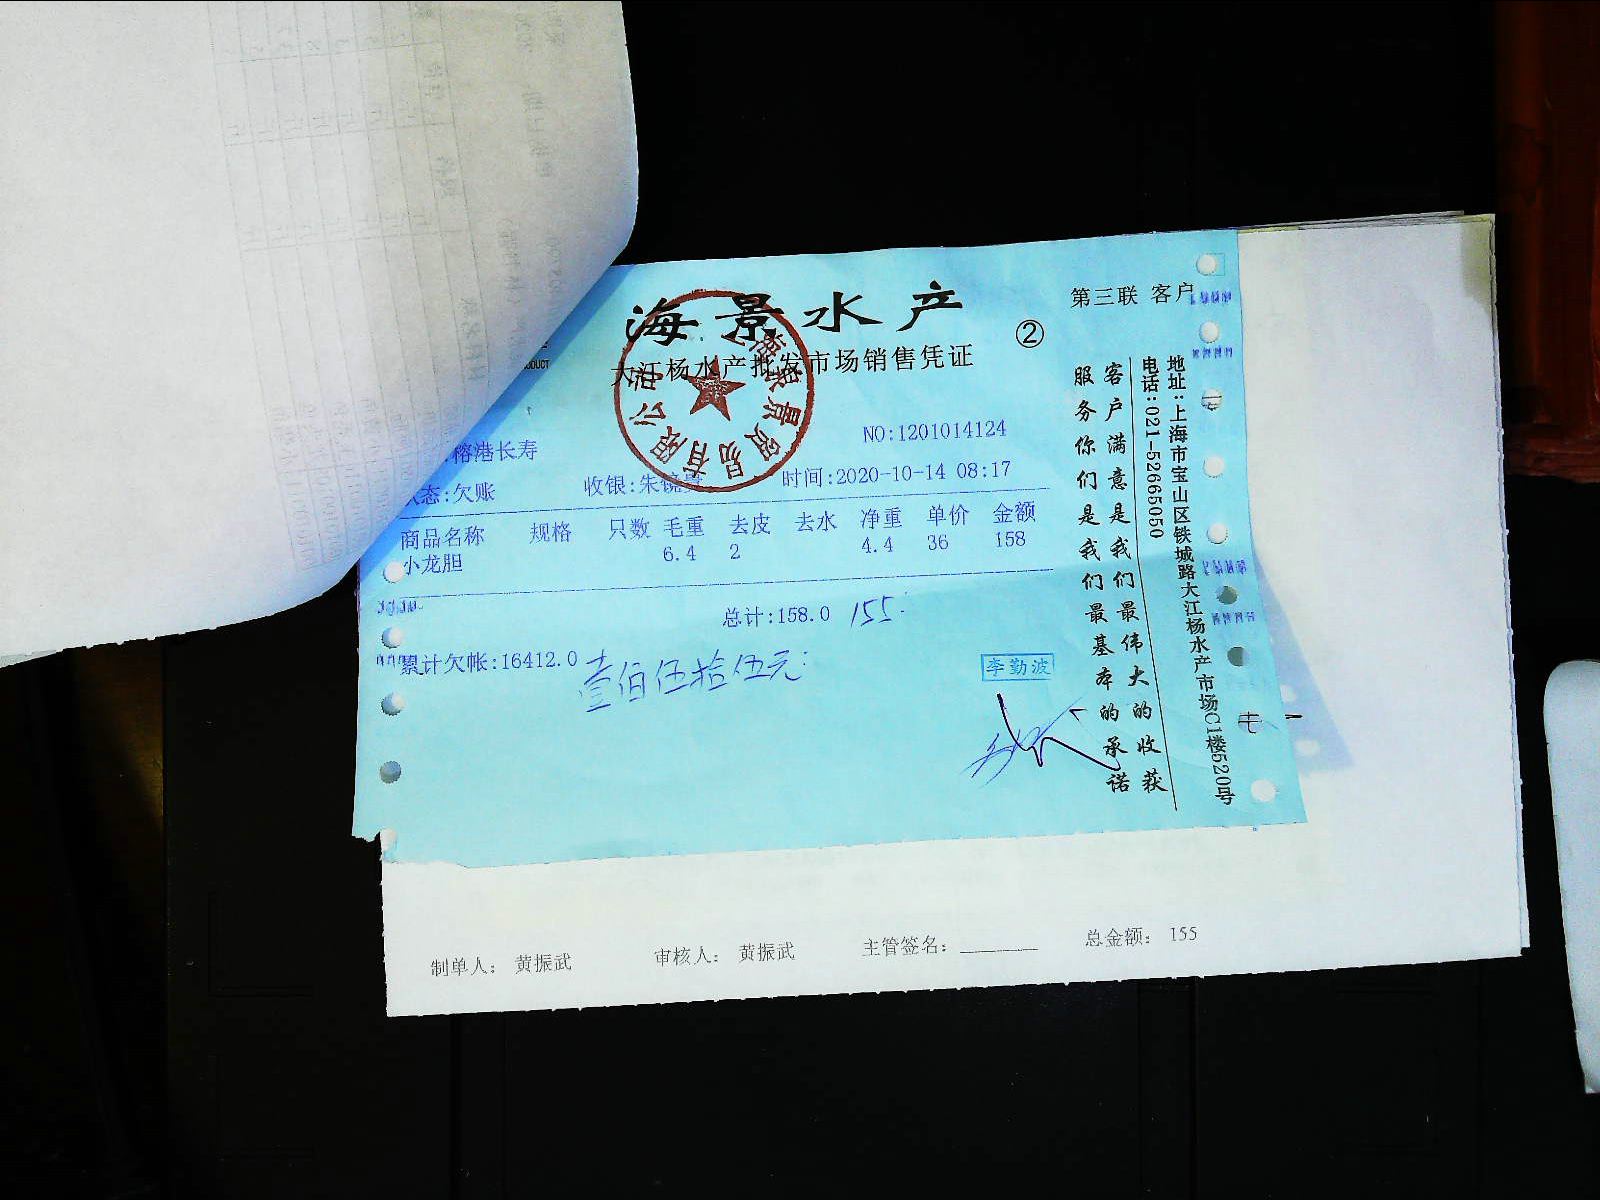 海景水产
②
第三联 客户
大江杨水产批发市场销售凭证
NO:1201014124
榕港长寿
态:欠账 收银:朱镜 时间:2020-10-14 08:17
商品名称 规格 只数 毛重 去皮 去水 净重 单价 金额
小龙胆 6.4 2 4.4 36 158
总计:158.0 155
累计欠帐:16412.0
壹佰伍拾伍元
李勤波
客户满意是我们最伟大的收获
服务你们是我们最基本的承诺
地址:上海市宝山区铁城路大江杨水产市场C1楼520号
电话:021-52665050
制单人: 黄振武 审核人: 黄振武 主管签名: 总金额: 155